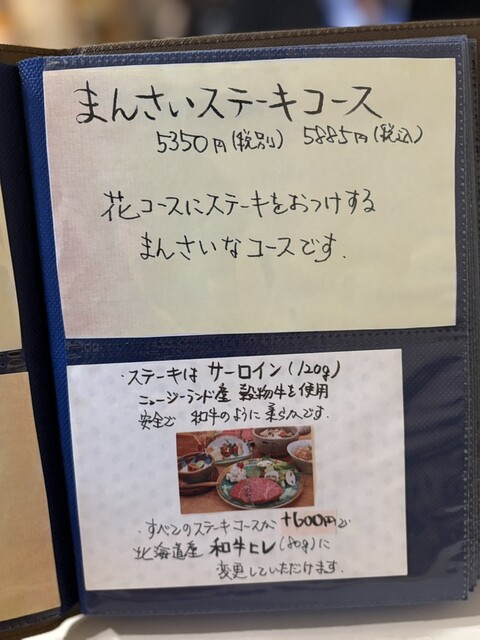 まんさいステーキコース
5350円(税別) 5885円(税込)
花コースにステーキをおつけする
まんさいなコースです.
・ステーキは サーロイン(120g)
ニュージーランド産 穀物牛を使用
安全で 和牛のように柔らかです.
・すべてのステーキコースが +600円で
北海道産 和牛ヒレ(80g)に
変更していただけます.